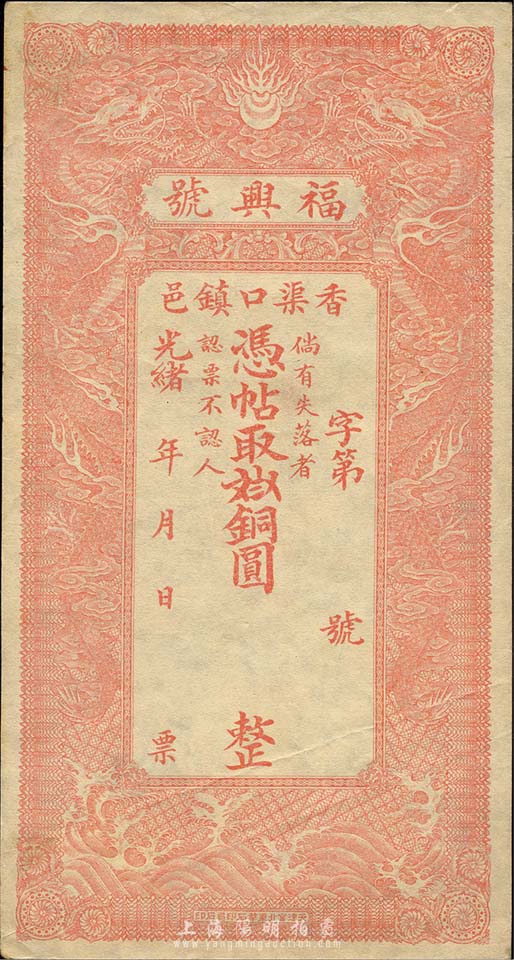 福興號
香渠口鎮邑
字第 號
倘有失落者
認票不認人
憑帖取 銅圓 整
光緒 年 月 日 票
上海陽明拍賣
www.yangmingauction.com